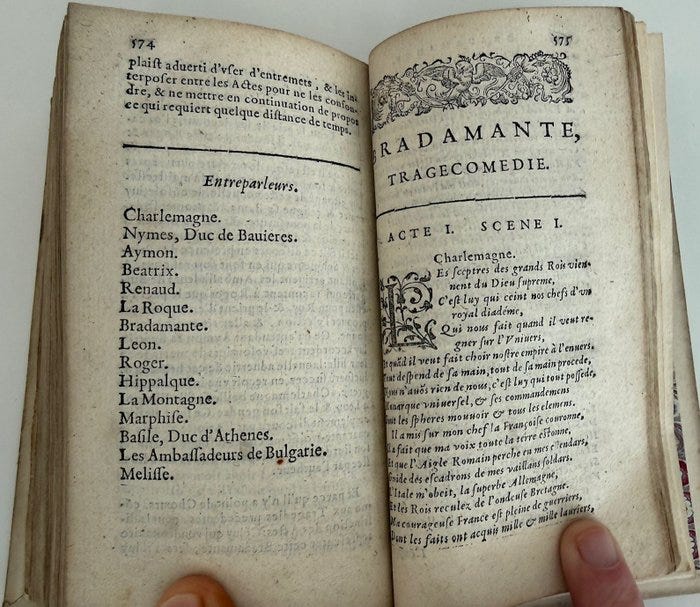 574
plaiſt aduerti d'vſer d'entremets, & les in-
terpoſer entre les Actes pour ne les confon-
dre, & ne mettre en continuation de propos
ce qui requiert quelque diſtance de temps.
Entreparleurs.
Charlemagne.
Nymes, Duc de Bauieres.
Aymon.
Beatrix.
Renaud.
La Roque.
Bradamante.
Leon.
Roger.
Hippalque.
La Montagne.
Marphiſe.
Baſile, Duc d'Athenes.
Les Ambaſſadeurs de Bulgarie.
Meliſſe.
575
BRADAMANTE,
TRAGECOMEDIE.
ACTE I. SCENE I.
Charlemagne.
Es ſceptres des grands Rois vien-
nent du Dieu ſupreme,
C'eſt luy qui ceint nos chefs d'vn
royal diadéme,
Qui nous fait quand il veut re-
gner ſur l'Vniuers,
Et quãd il veut fait choir noſtre empire à l'enuers.
Tout deſpend de ſa main, tout de ſa main procede,
Nous n'auõs rien de nous, c'eſt luy qui tout poſſede,
Monarque vniuerſel, & ſes commandemens
Font les ſpheres mouuoir & tous les elemens.
Il a mis ſur mon chef la Françoiſe couronne,
Il a fait que ma voix toute la terre eſtonne,
Et que l'Aigle Romain perche en mes eſtendars,
Guide des eſcadrons de mes vaillans ſoldars.
L'Itale m'obeit, la ſuperbe Allemagne,
Et les Rois reculez de l'ondeuſe Bretagne.
Ma courageuſe France eſt pleine de guerriers,
Dont les faits ont acquis mille & mille lauriers,